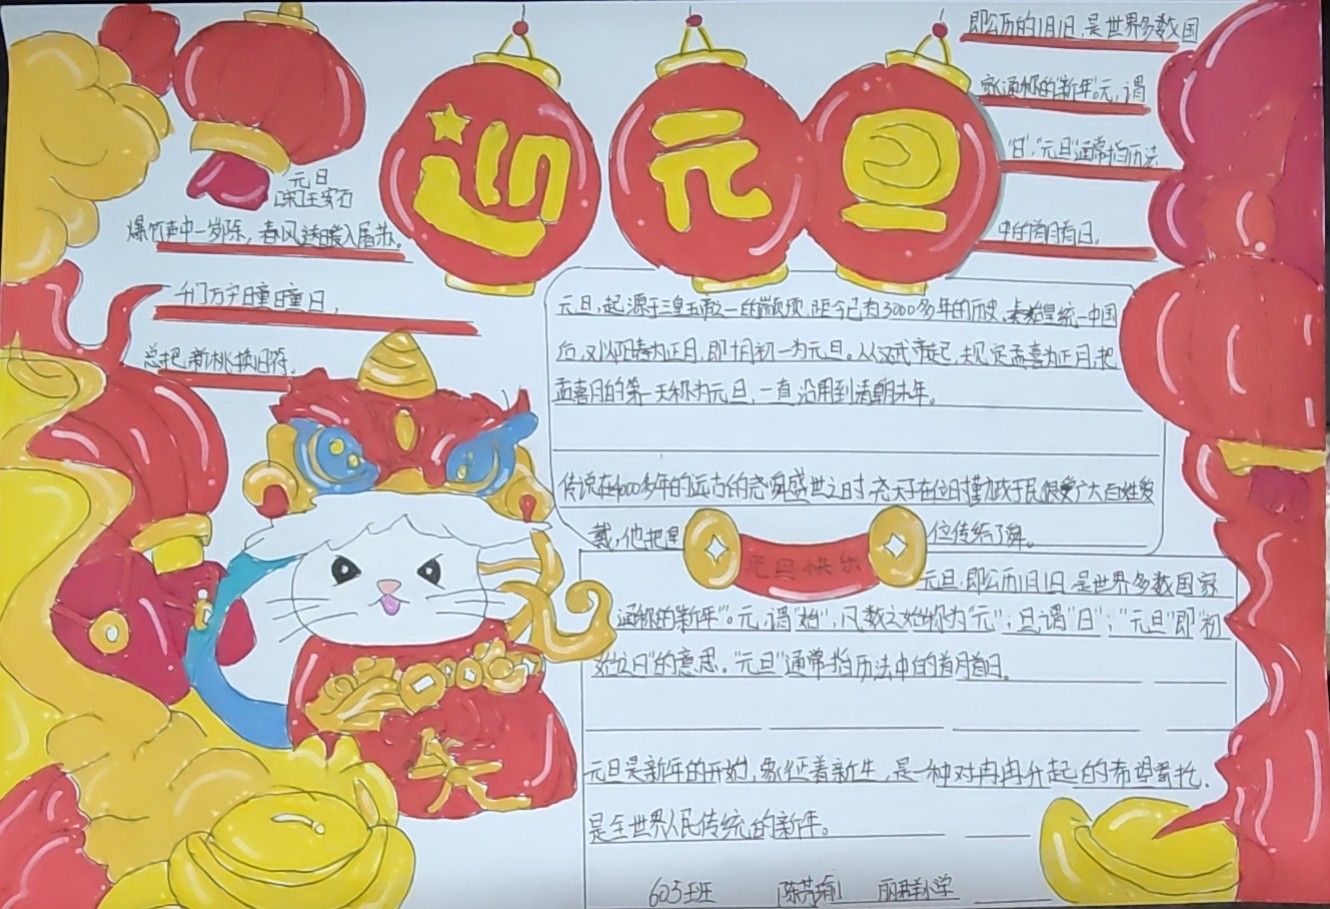 迎元旦
即公历的1月1日,是世界多数国
家通称的"新年"。元,谓
"日";"元旦"通常指历法
中的首月首日。
元日
[宋]王安石
爆竹声中一岁除,春风送暖入屠苏。
千门万字曈曈日,
总把新桃换旧符。
元旦,起源于三皇五帝之一的颛顼,距今已有3000多年的历史,秦始皇统一中国
后,又以阳春为正日,即十月初一为元旦。从汉武帝起,规定孟喜为正月,把
孟喜月的第一天称为元旦,一直沿用到清朝末年。
传说在4000多年的远古的尧舜盛世之时,尧天子在位时勤政于民很受广大百姓爱
戴,他把皇
位传给了舜。
元旦快乐
元旦,即公历1月1日,是世界多数国家
通称的"新年"。元,谓"始",凡数之始称为"元";旦谓"日";"元旦"即"初
始之日"的意思。"元旦"通常指历法中的首月首日。
元旦是新年的开始,象征着新生,是一种对冉冉升起的希望寄托,
是全世界人民传统的新年。
603班
小学